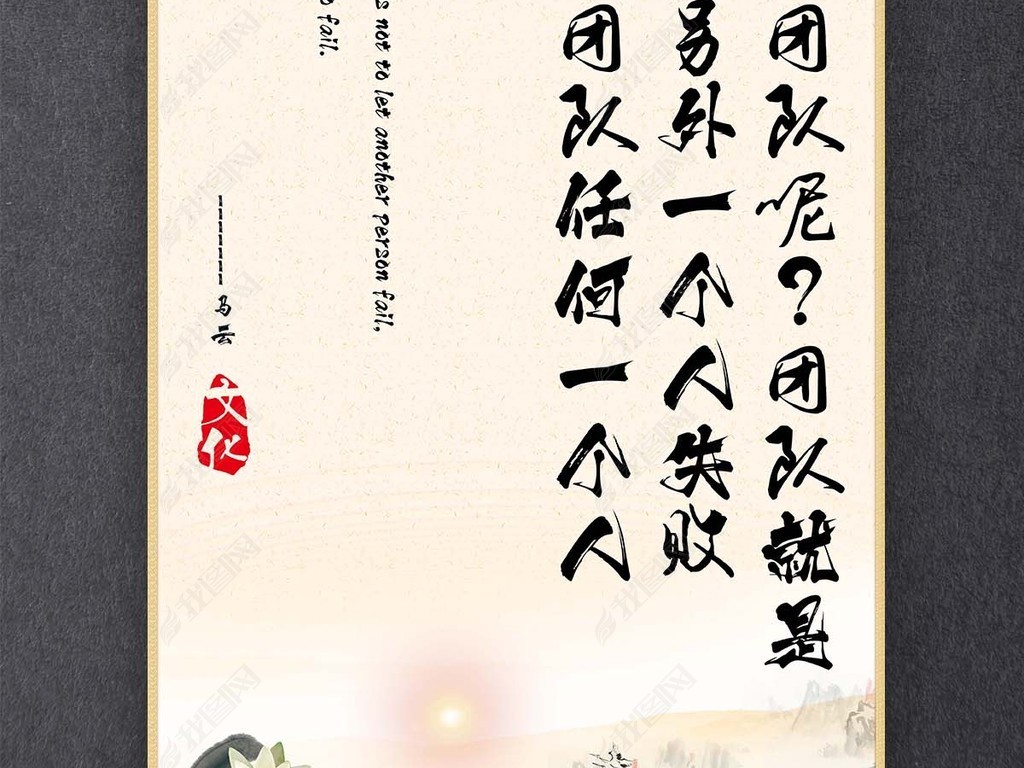 团队呢？团队就是
另外一个人失败
团队任何一个人
s not to let another person fail,
o fail.
---------马云
文化